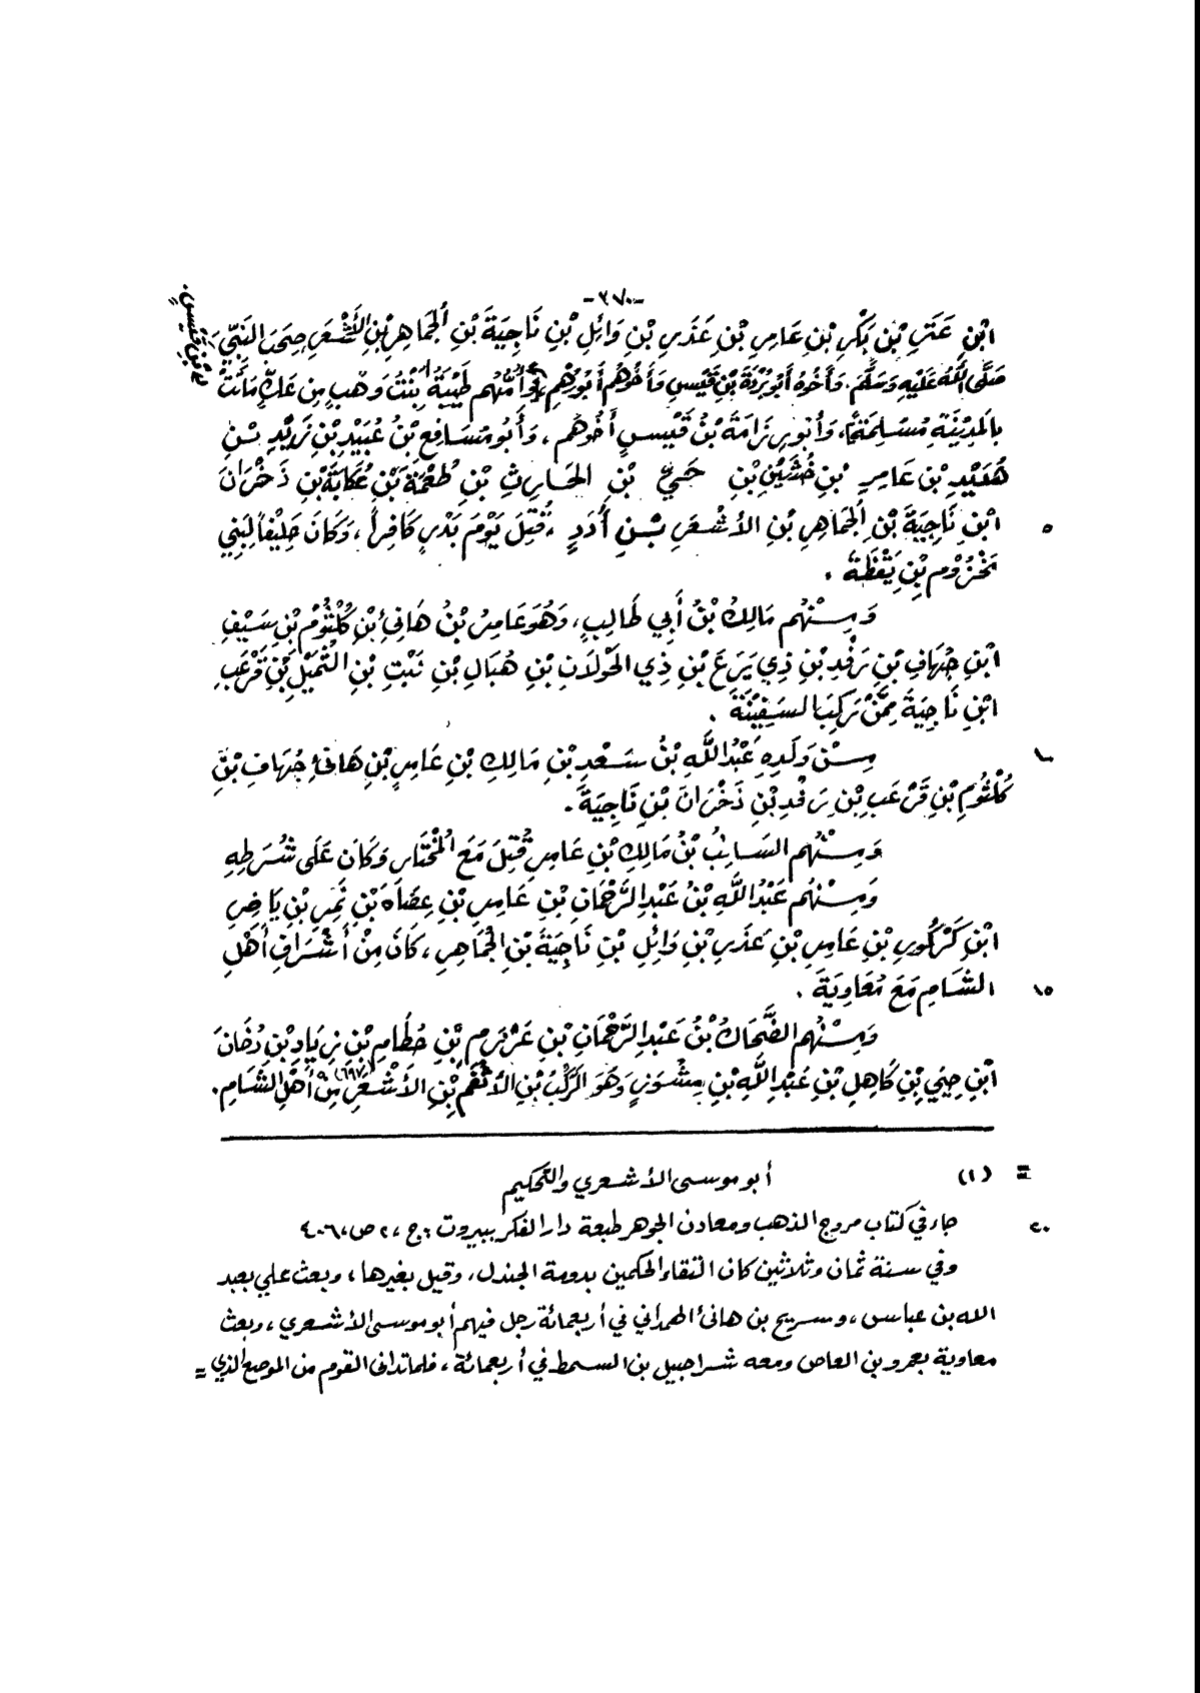 -٣٧٠-
ابْنِ عَتَرِ بْنِ بَكْرِ بْنِ عَامِرِ بْنِ عَذَرِ بْنِ وَائِلِ بْنِ نَاجِيَةَ بْنِ الْجَمَاهِرِ بْنِ الأَشْعَرِ صَحِبَ النَّبِيَّ
صَلَّى اللَّهُ عَلَيْهِ وَسَلَّمَ. وَأَخُوهُ أَبُو بُرْدَةَ بْنِ قَيْسٍ وَأَخُوهُم أَبُو رُهْمٍ وَأُمُّهُم طَيْبَةُ بِنْتُ وَهْبٍ مِن عَكٍّ مَاتَتْ
بِالمَدِيْنَةِ مُسْلِمَةً، وَأَبُو رِزَامَةَ بْنُ قَيْسٍ أَخُوهُم، وَأَبُو مُسَافِعِ بْنُ عُبَيْدِ بْنِ زَيْدِ بْنِ
هُعَيْدِ بْنِ عَامِرِ بْنِ خُشَيْنِ بْنِ حَيِّ بْنِ الحَارِثِ بْنِ طُعْمَةَ بْنِ عُكَابَةَ بْنِ ذَخْرَانَ
ابْنِ نَاجِيَةَ بْنِ الْجَمَاهِرِ بْنِ الأشْعَرِ بْنِ أُدَدٍ، قُتِلَ يَوْمَ بَدْرٍ كَافِراً، وَكَانَ حَلِيْفاً لِبَنِي
مَخْزُوْمِ بْنِ يَقْظَةَ.
٥
وَمِنْهُم مَالِكُ بْنُ أَبِي طَالِبٍ، وَهُوَ عَامِرُ بْنُ هَانِئِ بْنِ كُلْثُوْمِ بْنِ سَيْفِ
ابْنِ جُهَافِ بْنِ رَفْدِ بْنِ ذِي يَرَعَ بْنِ ذِي الحَوْلاَنِ بْنِ هُبَالِ بْنِ نَبْتِ بْنِ الثُّمَيْلِ بْنِ قَرْعَبِ
ابْنِ نَاجِيَةَ مِمَّنْ رَكِبَ السَفِيْنَةَ.
مِنْ وَلَدِهِ عَبْدُ اللَّهِ بْنُ سَعْدِ بْنِ مَالِكِ بْنِ عَامِرِ بْنِ هَانِئِ جُهَافِ بْنِ
١٠
كُلْثُومِ بْنِ قَرْعَبِ بْنِ رَفْدِ بْنِ ذَخْرَانَ بْنِ نَاجِيَةَ.
وَمِنْهُم السَائِبُ بْنُ مَالِكِ بْنِ عَامِرِ قُتِلَ مَعَ المُخْتَارِ وَكَانَ عَلَى شُرَطِهِ
وَمِنْهُم عَبْدُ اللَّهِ بْنُ عَبْدِ الرَّحْمَانِ بْنِ عَامِرِ بْنِ عِضَاهَ بْنِ نَمِرِ بْنِ يَاضِرِ
ابْنِ كَرْكُورِ بْنِ عَامِرِ بْنِ عَذَرِ بْنِ وَائِلِ بْنِ نَاجِيَةَ بْنِ الْجَمَاهِرِ، كَانَ مِنْ أَشْرَافِ أَهْلِ
الشَامِ مَعَ مُعَاوِيَةَ.
١٥
وَمِنْهُم الضَّحَّاكُ بْنُ عَبْدِ الرَّحْمَانِ بْنِ عَرْزَمِ بْنِ حُطَامِ بْنِ زِيَادِ بْنِ دُخَانَ
ابْنِ حِيَيِّ بْنِ كَاهِلِ بْنِ عَبْدِ اللَّهِ بْنِ وَهُوَ الرَّكْبُ بْنِ الأَنْعَمِ بْنِ الأَشْعَرِ مِنْ أَهْلِ الشَامِ.
= (١) أبو موسى الأشعري والتحكيم
جاء في كتاب مروج الذهب ومعادن الجوهر طبعة دار الفكر ببيروت: ج، ٢ ص، ٤٠٦
٢٠
وفي سنة ثمان وثلاثين كان التقاء الحكمين بدومة الجندل، وقيل بغيرها، وبعث علي بعبد
الله بن عباس، وسريح بن هانئ الهمداني في أربعمائة رجل فيهم أبو موسى الأشعري، وبعث
معاوية بعمرو بن العاص ومعه شراحبيل بن السمط في أربعمائة، فلما تدانى القوم من الموضع الذي =